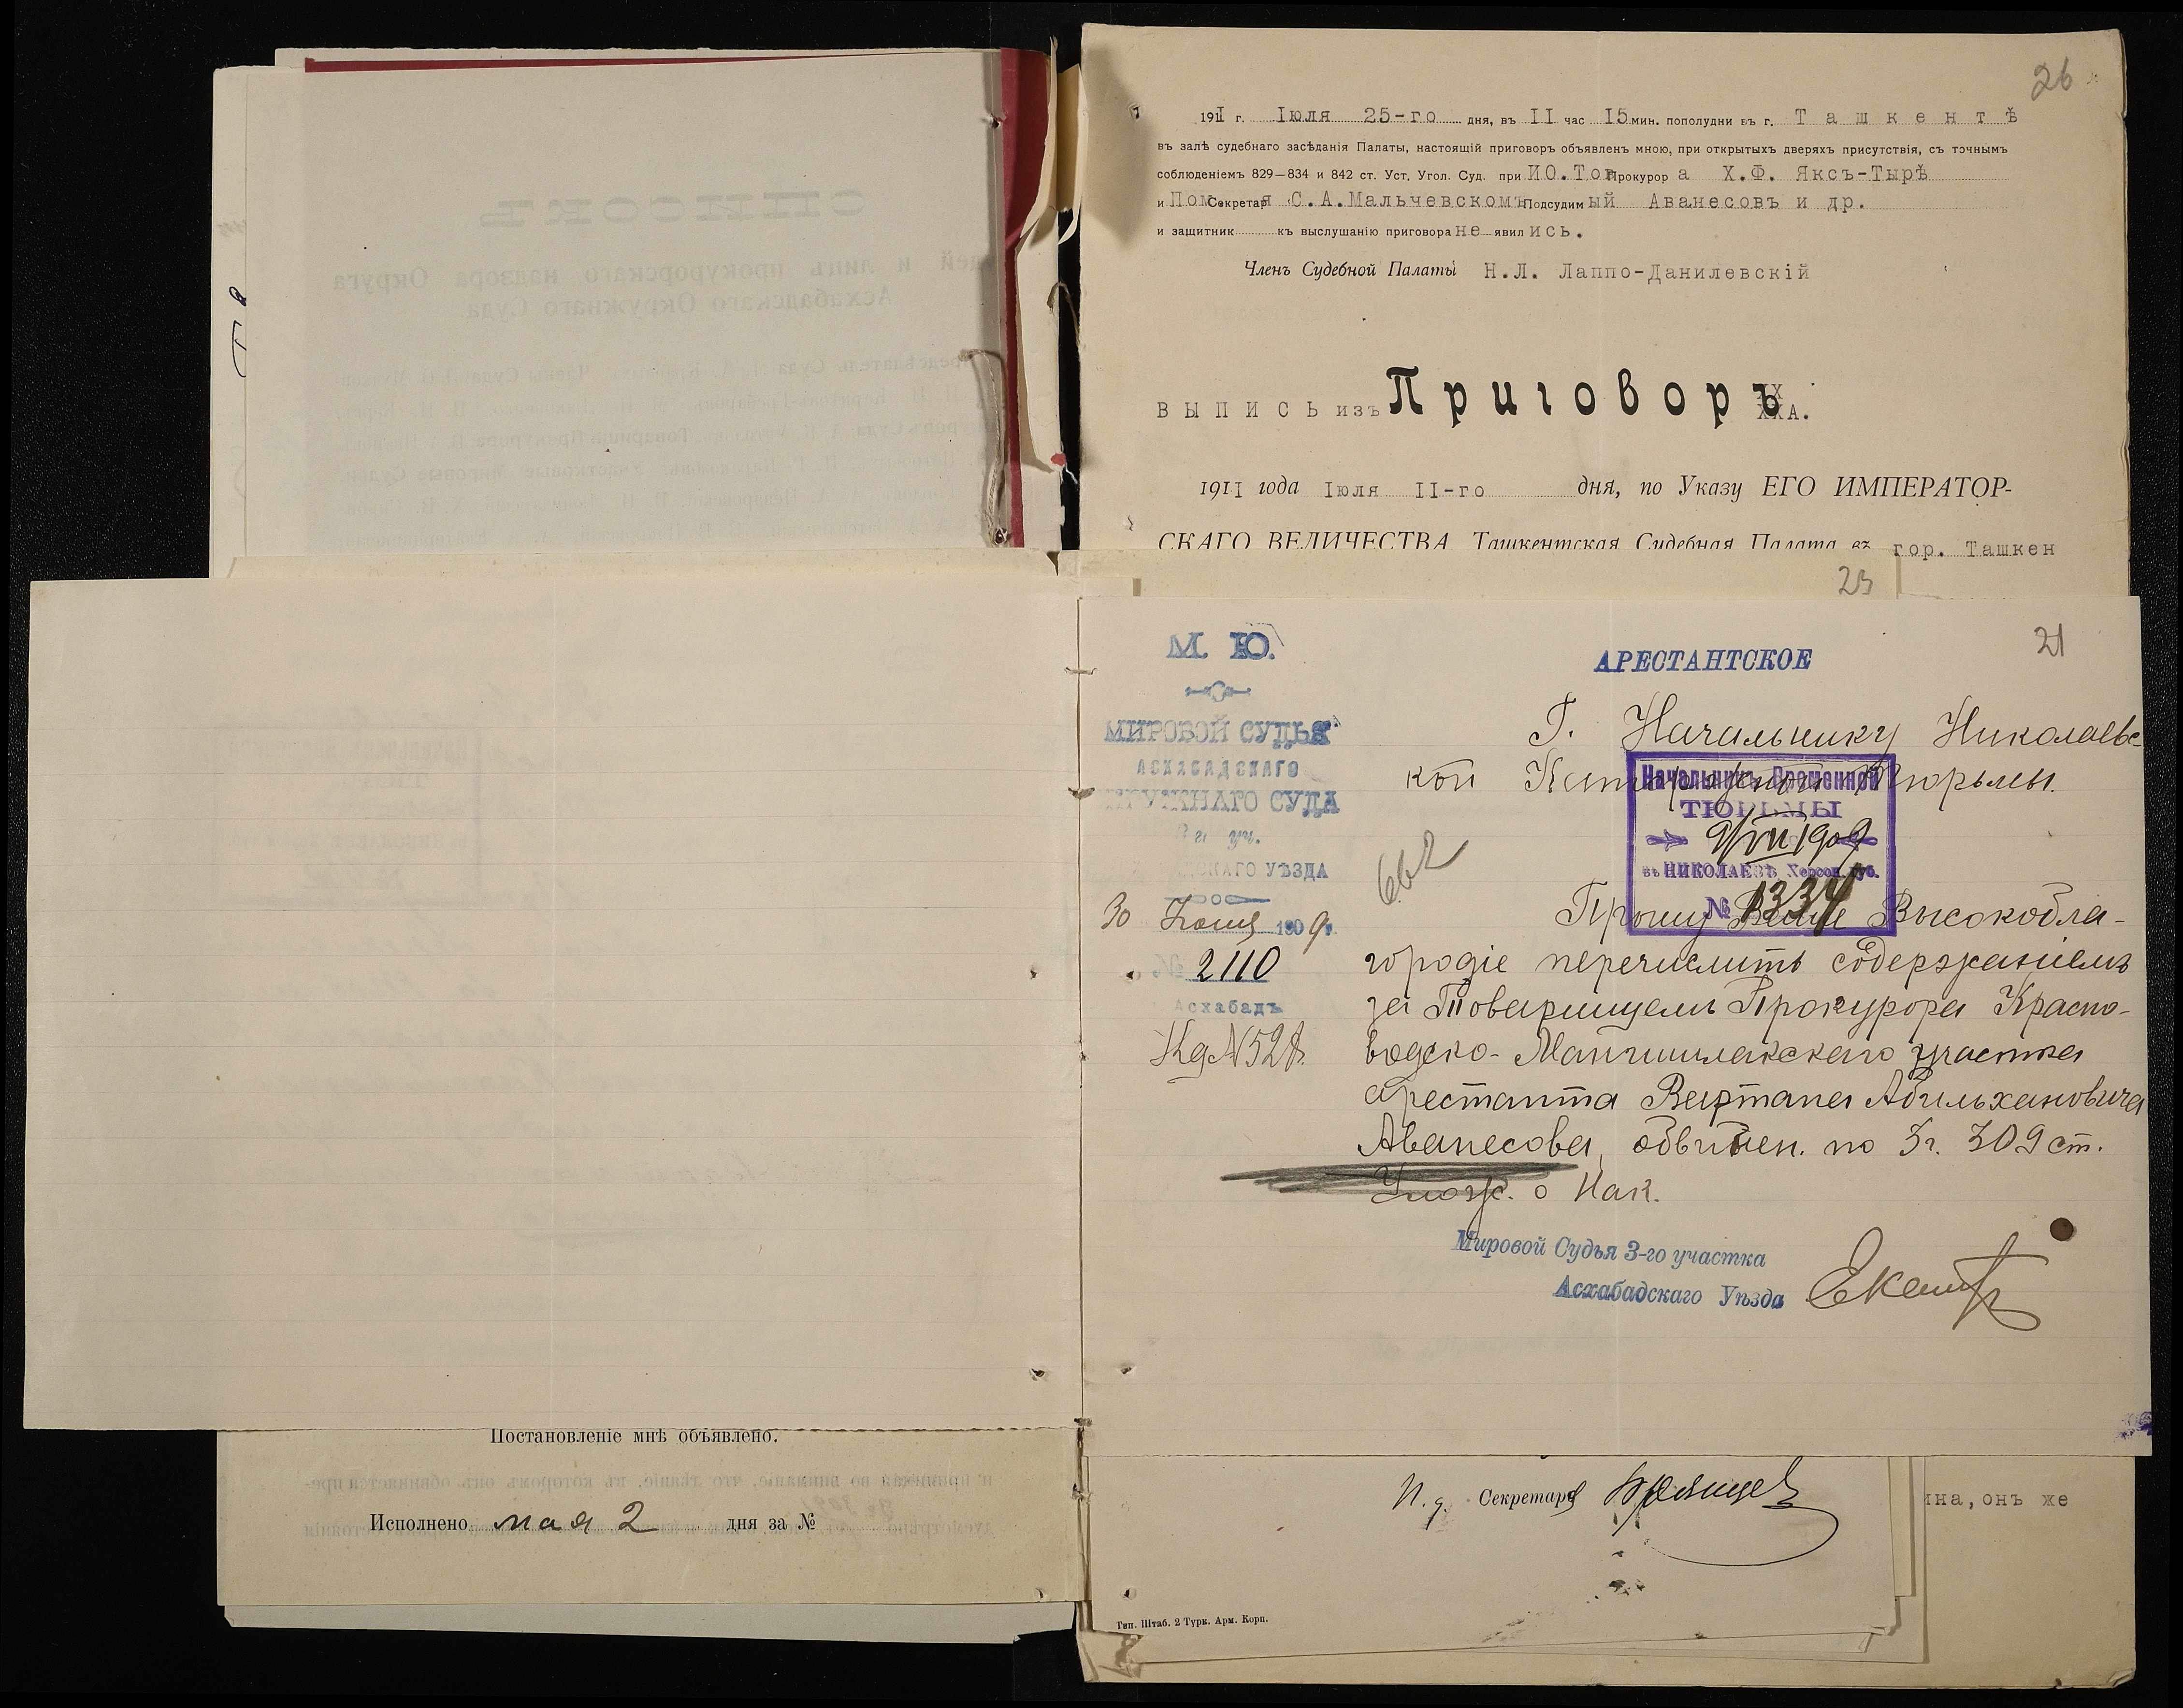 26
1911 г. Iюля 25-го дня, въ II час I5 мин. пополудни въ г. Ташкентѣ
въ залѣ судебнаго засѣданія Палаты, настоящій приговоръ объявленъ мною, при открытыхъ дверяхъ присутствія, съ точнымъ
соблюденіемъ 829—834 и 842 ст. Уст. Угол. Суд. при ИО.Тов Прокурор а Х.Ф. Яксъ-Тырѣ
и Пом. Секретаря С.А.Мальчевскомъ Подсудимый Аванесовъ и др.
и защитник къ выслушанію приговора не явились.
Членъ Судебной Палаты Н.Л. Лаппо-Данилевскій
ВЫПИСЬ изъ Приговоръ А.
1911 года Iюля II-го дня, по Указу ЕГО ИМПЕРАТОР-
СКАГО ВЕЛИЧЕСТВА Ташкентская Судебная Палата въ гор. Ташкен
23
21
М. Ю.
МИРОВОЙ СУДЬЯ
АСХАБАДСКАГО
ОКРУЖНАГО СУДА
уч.
УѢЗДА
30 Іюня 1909 г.
№ 2110
Асхабадъ
АРЕСТАНТСКОЕ
Г. Начальнику Николаевс-
кой Каторжной Тюрьмы.
Начальникъ Временной
ТЮРЬМЫ
9/VII 1909
въ НИКОЛАЕВѢ Херсон. губ.
№ 1334
662
Прошу Ваше Высокобла-
городіе перечислить содержаніемъ
за Товарищемъ Прокурора Красно-
водско-Мангишлакскаго участка
арестанта Вартана Абильхановича
Аванесова, обвиняем. по 3 ч. 309 ст.
Улож. о Нак.
Мировой Судья 3-го участка
Асхабадскаго Уѣзда
Постановленіе мнѣ объявлено.
Исполнено мая 2 дня за №
И. д. Секретаря
ина, онъ же
Тип. Штаб. 2 Турк. Арм. Корп.